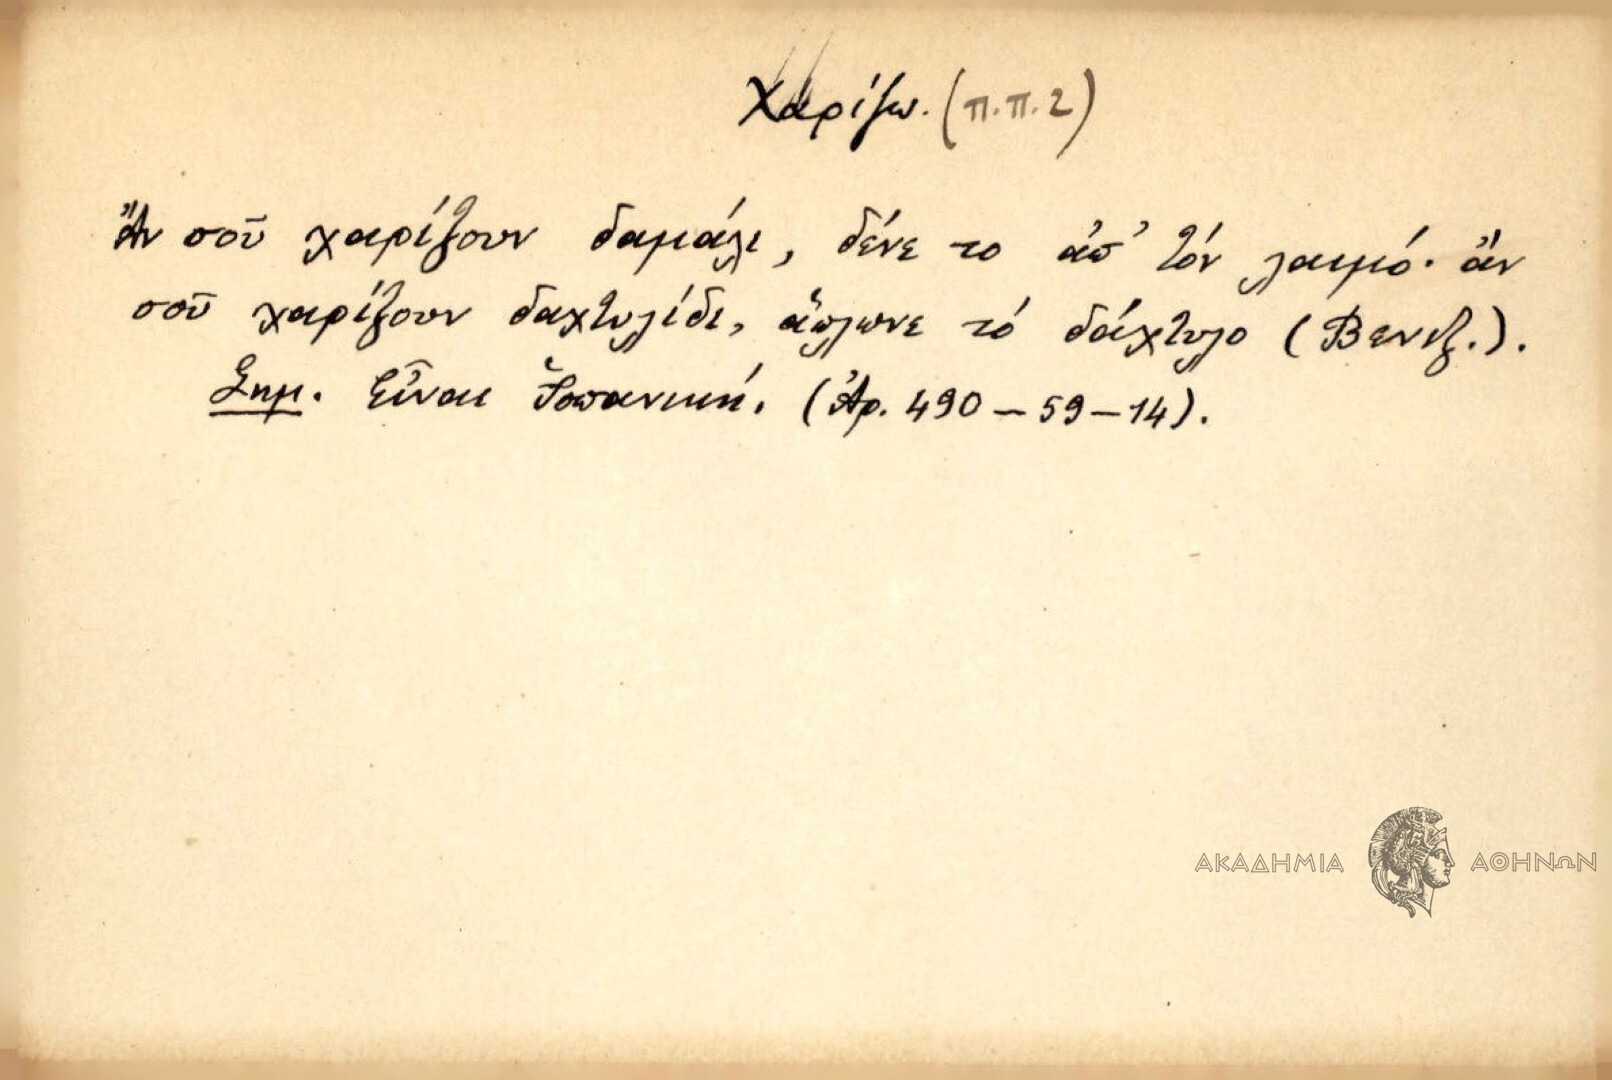 Χαρίζω. (π.π. 2)
Ἂν σοῦ χαρίζουν δαμάλι, δένε το ἀπ' τόν λαιμό· ἄν
σοῦ χαρίζουν δαχτυλίδι, ἅπλωνε τό δάχτυλο (Βενιζ.).
Σημ. Εἶναι Ἱσπανική. (Ἀρ. 490 – 59 – 14).
ΑΚΑΔΗΜΙΑ ΑΘΗΝΩΝ